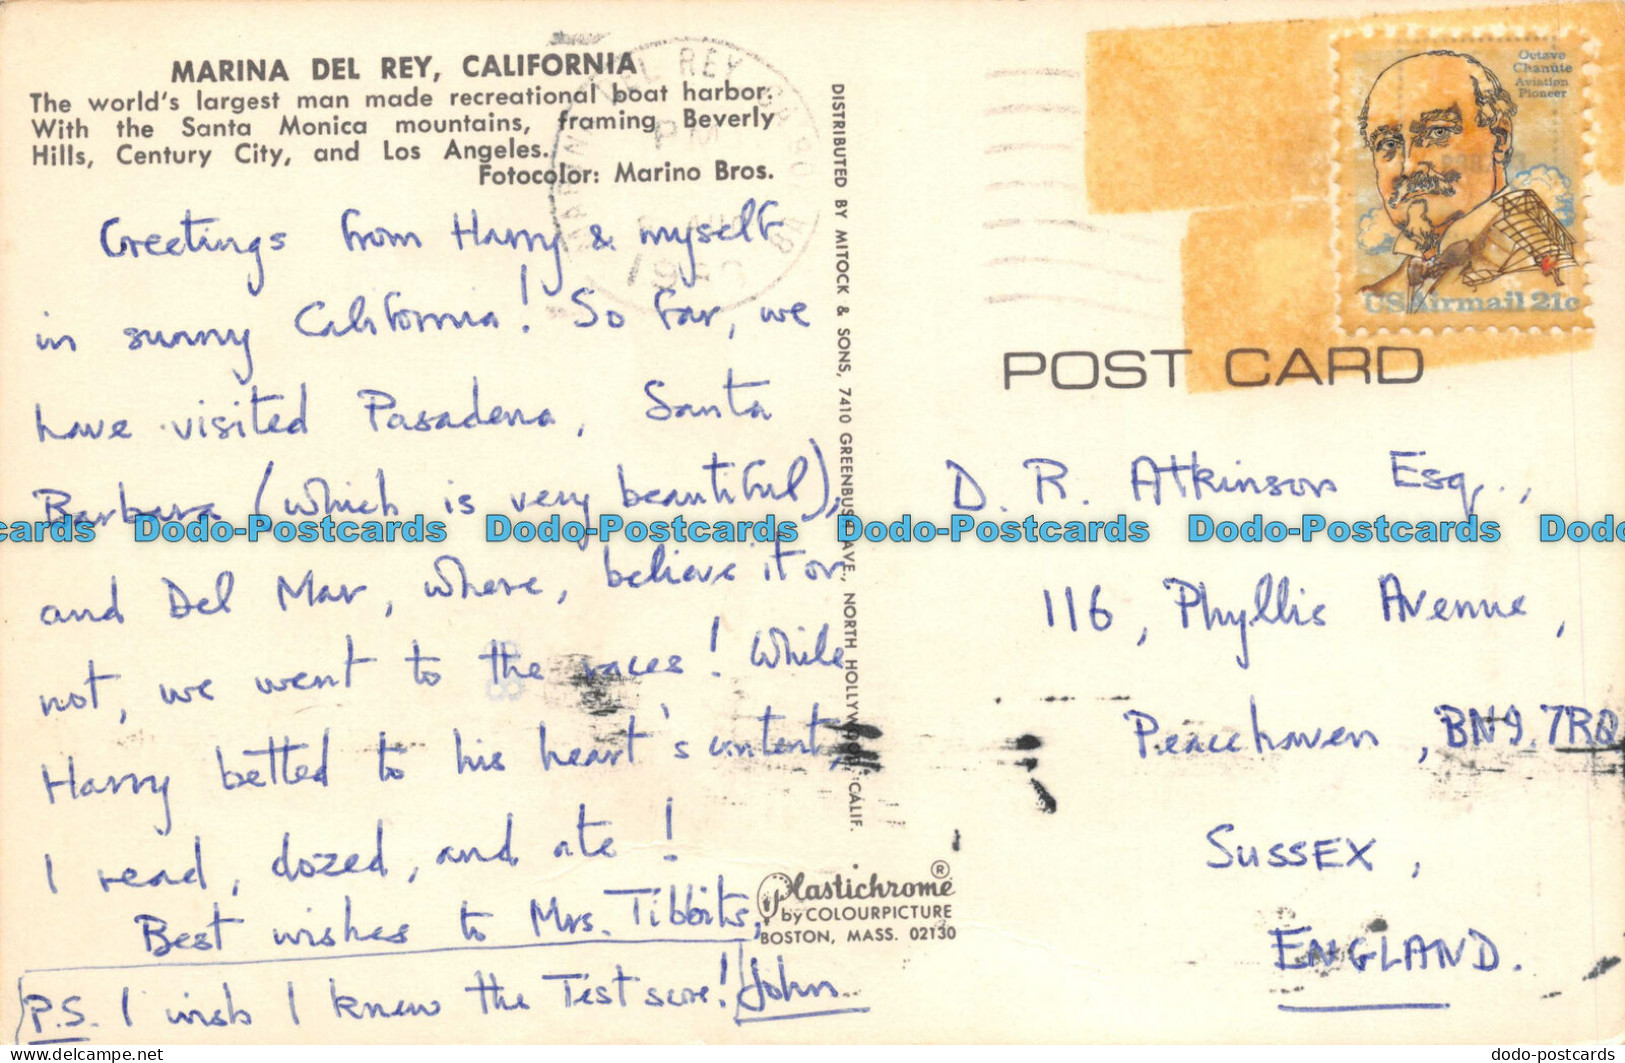 MARINA DEL REY, CALIFORNIA
The world's largest man made recreational boat harbor.
With the Santa Monica mountains, framing Beverly
Hills, Century City, and Los Angeles.
Fotocolor: Marino Bros.
Greetings from Harry & myself
in sunny California! So far, we
have visited Pasadena, Santa
Barbara (which is very beautiful),
and Del Mar, where, believe it or
not, we went to the races! While
Harry betted to his heart's content,
I read, dozed, and ate!
Best wishes to Mrs. Tibbits,
John
P.S. I wish I knew the Test score!
DISTRIBUTED BY MITOCK & SONS, 7410 GREENBUSH AVE., NORTH HOLLYWOOD, CALIF.
Plastichrome®
by COLOURPICTURE
BOSTON, MASS. 02130
DEL REY CA
PM
Octave
Chanute
Aviation
Pioneer
US Airmail 21c
POST CARD
D. R. Atkinson Esq.,
116, Phyllis Avenue,
Peacehaven, BN9 7RQ
SUSSEX,
ENGLAND.
cards Dodo-Postcards Dodo-Postcards Dodo-Postcards Dodo-Postcards Dodo
Dodo-Postcards
dodo-postcards.com